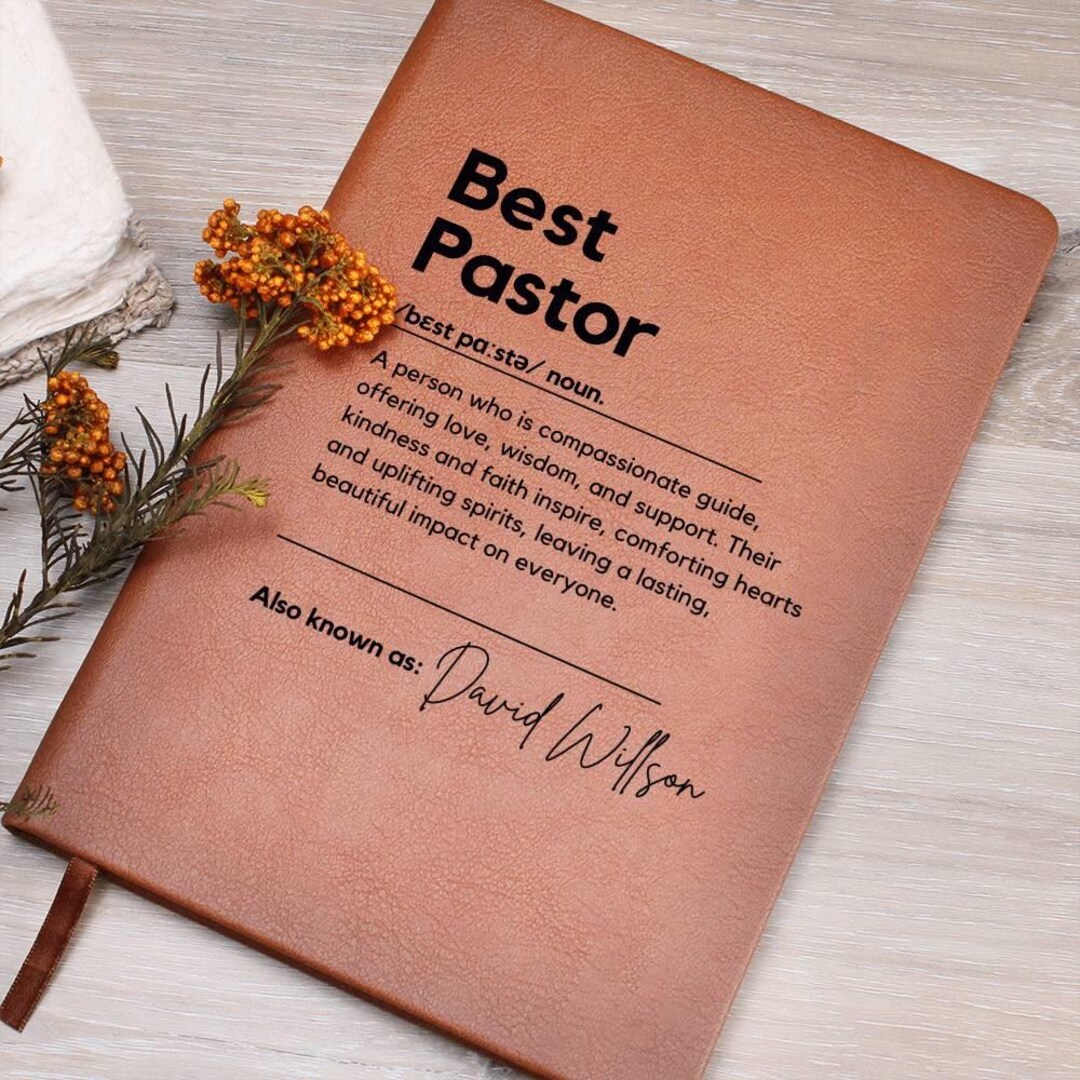 Best
Pastor
/bɛst pɑːstə/ noun.
A person who is compassionate guide,
offering love, wisdom, and support. Their
kindness and faith inspire, comforting hearts
and uplifting spirits, leaving a lasting,
beautiful impact on everyone.
Also known as: David Willson